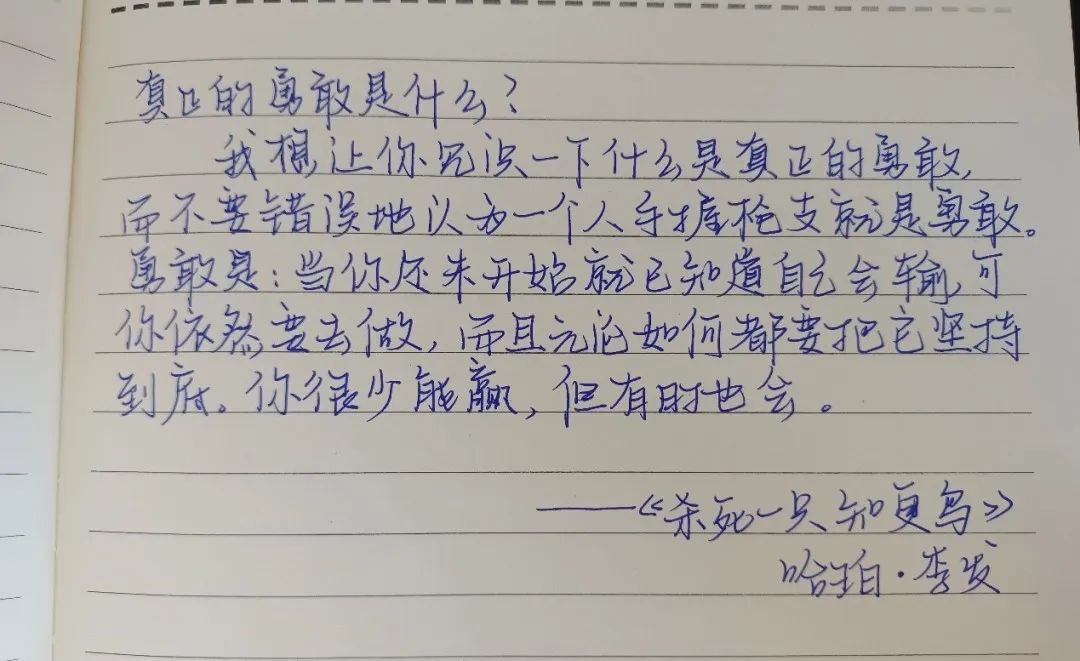 真正的勇敢是什么?
我想让你见识一下什么是真正的勇敢,
而不要错误地认为一个人手握枪支就是勇敢。
勇敢是:当你还未开始就已知道自己会输,可
你依然要去做,而且无论如何都要把它坚持
到底。你很少能赢,但有时也会。
——《杀死一只知更鸟》
哈珀·李发